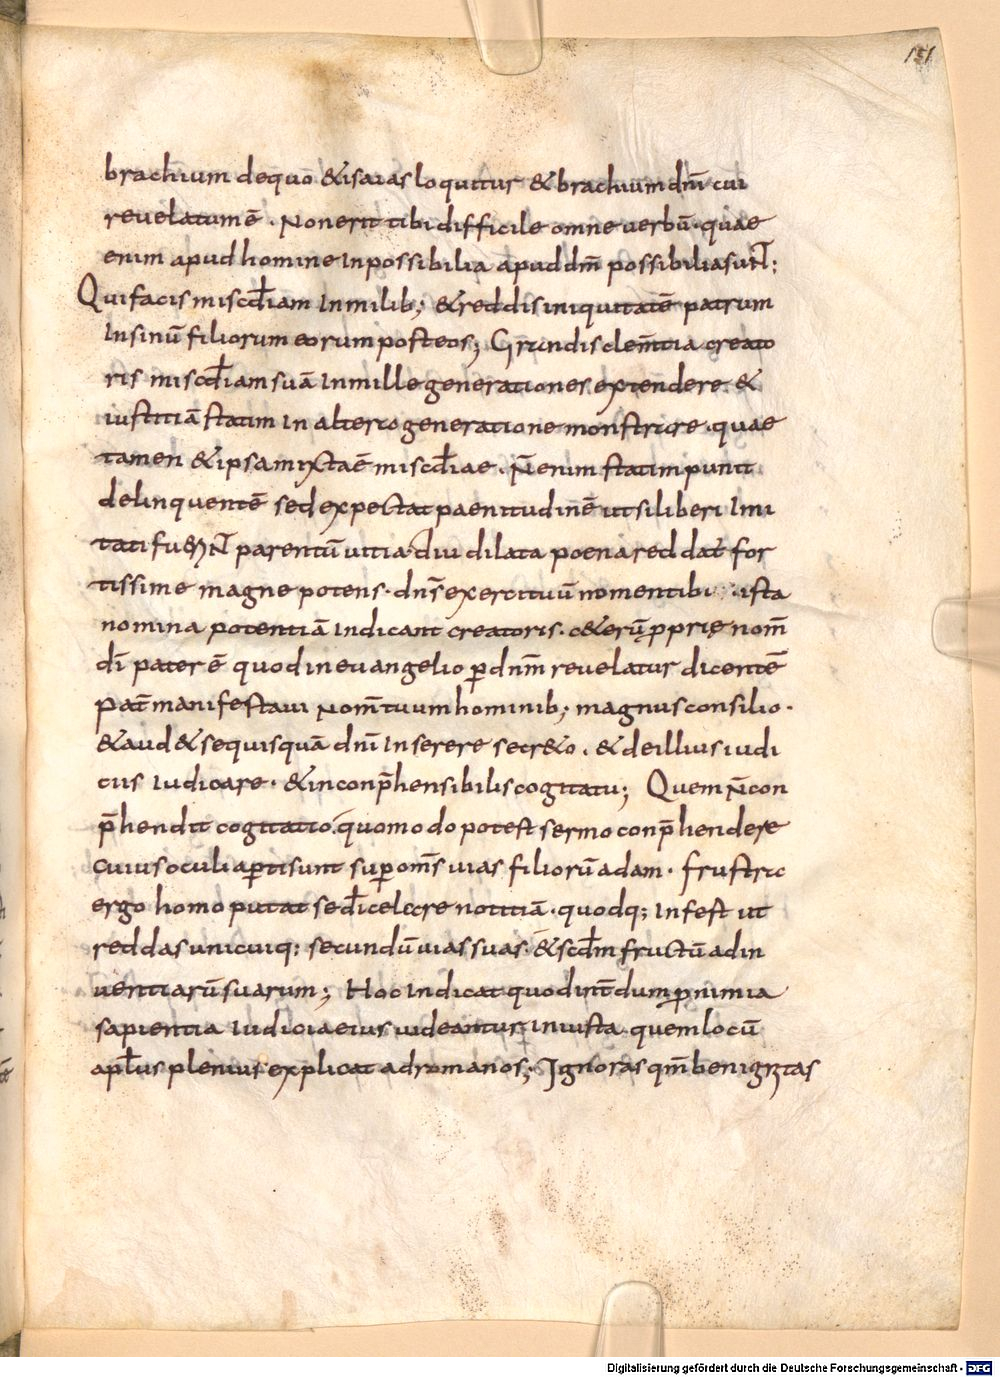 151
brachium dequō &isaias loquitur & brachium dn̄i cui
reuelatum ē. Non erit tibi difficile omne uerbū. quae
enim apud homine inpossibilia apud dm̄ possibilia suNT;
Qui facis misc̄diam in milib; & reddis iniquitatē patrum
in sinū filiorum eorum post eos; Grandis clem̄tia creato
ris misc̄diam suā in mille generationes extendere. &
iustitiā statim in altero generatione monstrare. quae
tamen & ipsa mixta ē misc̄diae. N̄ enim statim punit
delinquentē sed expectat paenitudinē ut si liberi imi
tati fuerNT parentū uitia. diu dilata poena reddat for
tissime magne potens. dn̄s exercituū nomen tibi . ista
nomina potentiā indicant creatoris. c&erū ꝓprię nom̄
dī pater ē quod in euangelio ꝑ dn̄m reuelatur dicentē
pat̄ manifestaui nom̄ tuum hominib; magnus consilio.
& aud& sequis quā dn̄i inserere secr&o. & de illius iudi
ciis iudicare. & inconp̄hensibilis cogitatu; Quem n̄ con
p̄hendit cogitatio. quomodo potest sermo conp̄hendere
cuius oculi aꝑti sunt suꝑ om̄s uias filiorū adam. frustra
ergo homo putat se dī celare notitiā. quodq; infest ut
reddas unicuiq; secundū uias suas. & sc̄dm fructū adin
uentiarū suarum; Hoc indicat quod int̄dum ꝑ nimia
sapientia iudicia eius uideantur iniusta. quem locū
apl̄us plenius explicat ad romanos; Ignoras qm̄ benigNtas
Digitalisierung gefördert durch die Deutsche Forschungsgemeinschaft - DFG